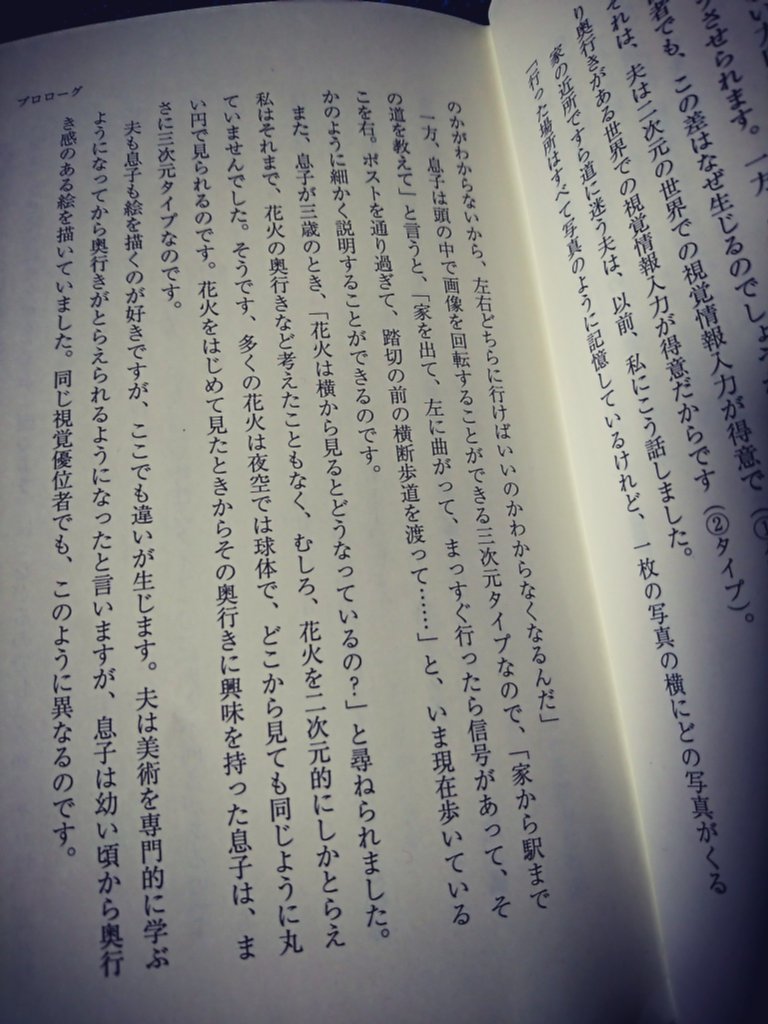 い方
させられます。一方
者でも、この差はなぜ生じるのでしょう
それは、夫は二次元の世界での視覚情報入力が得意で（①
り奥行きがある世界での視覚情報入力が得意だからです（②タイプ）。
家の近所ですら道に迷う夫は、以前、私にこう話しました。
「行った場所はすべて写真のように記憶しているけれど、一枚の写真の横にどの写真がくる
のかがわからないから、左右どちらに行けばいいのかわからなくなるんだ」
一方、息子は頭の中で画像を回転することができる三次元タイプなので、「家から駅まで
の道を教えて」と言うと、「家を出て、左に曲がって、まっすぐ行ったら信号があって、そ
こを右。ポストを通り過ぎて、踏切の前の横断歩道を渡って……」と、いま現在歩いている
かのように細かく説明することができるのです。
また、息子が三歳のとき、「花火は横から見るとどうなっているの？」と尋ねられました。
私はそれまで、花火の奥行きなど考えたこともなく、むしろ、花火を二次元的にしかとらえ
ていませんでした。そうです、多くの花火は夜空では球体で、どこから見ても同じように丸
い円で見られるのです。花火をはじめて見たときからその奥行きに興味を持った息子は、ま
さに三次元タイプなのです。
夫も息子も絵を描くのが好きですが、ここでも違いが生じます。夫は美術を専門的に学ぶ
ようになってから奥行きがとらえられるようになったと言いますが、息子は幼い頃から奥行
き感のある絵を描いていました。同じ視覚優位者でも、このように異なるのです。
プロローグ